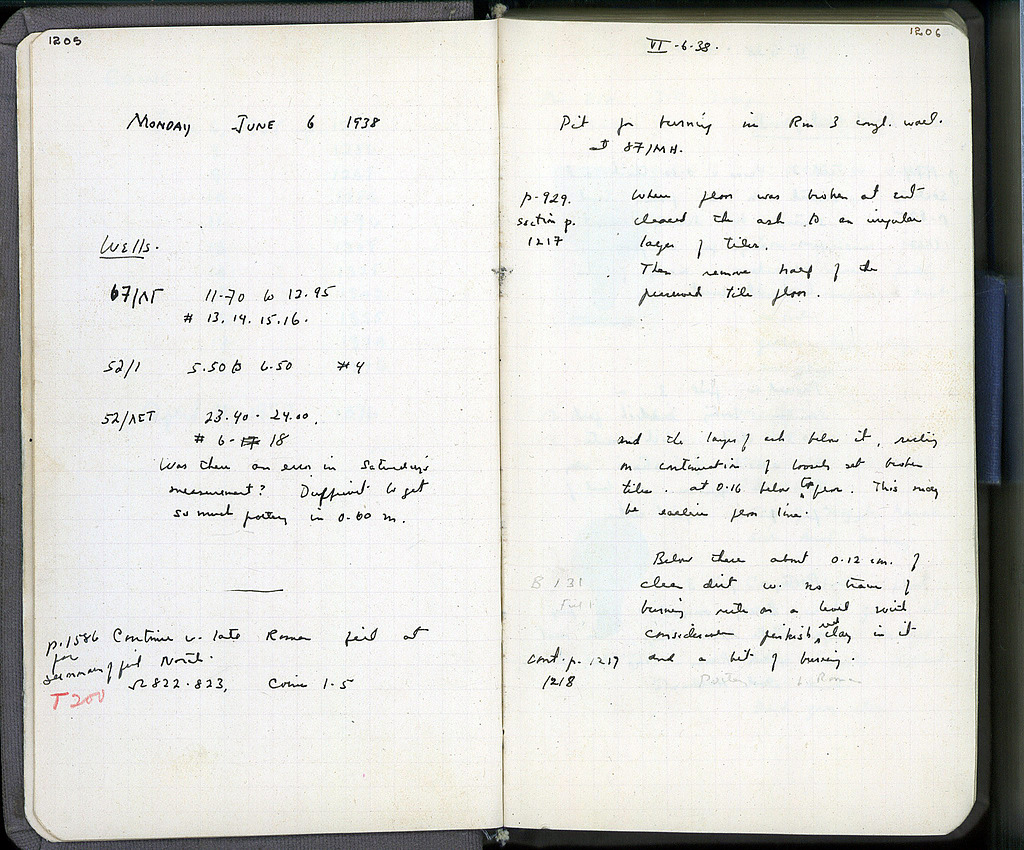 1205
MONDAY JUNE 6 1938
Wells.
67/ΛΓ 11.70 to 13.95
# 13. 14. 15. 16.
52/1 5.50 to 6.50 #4
52/ΛΣΤ 23.40 - 24.00.
# 6 - 17 18
Was there an error in Saturday's
measurement? Difficult to get
so much pottery in 0.60 m.
p. 1586 Continue w. late Roman fill at
for
summary of fill North.
Ω 822-823, Coins 1-5
T 200
1206
VI-6-38.
Pit for burning in Rm 3 congl. wall.
at 87/MH.
p-929.
section p.
1217
When floor was broken at
cleared the ash to an irregular
layer of tiles.
Then remove half of the
preserved tile floor.
and the layer of ash below it, resting
on continuation of loosely set broken
tiles. at 0.16 below top floor. This may
be earlier floor line.
B 131
Fill 1
Below these about 0.12 cm. of
clean dirt w. no trace of
burning rests on a level with
considerable pinkish red clay in it
and a bit of burning.
cont. p. 1217
1218
Pottery Roman